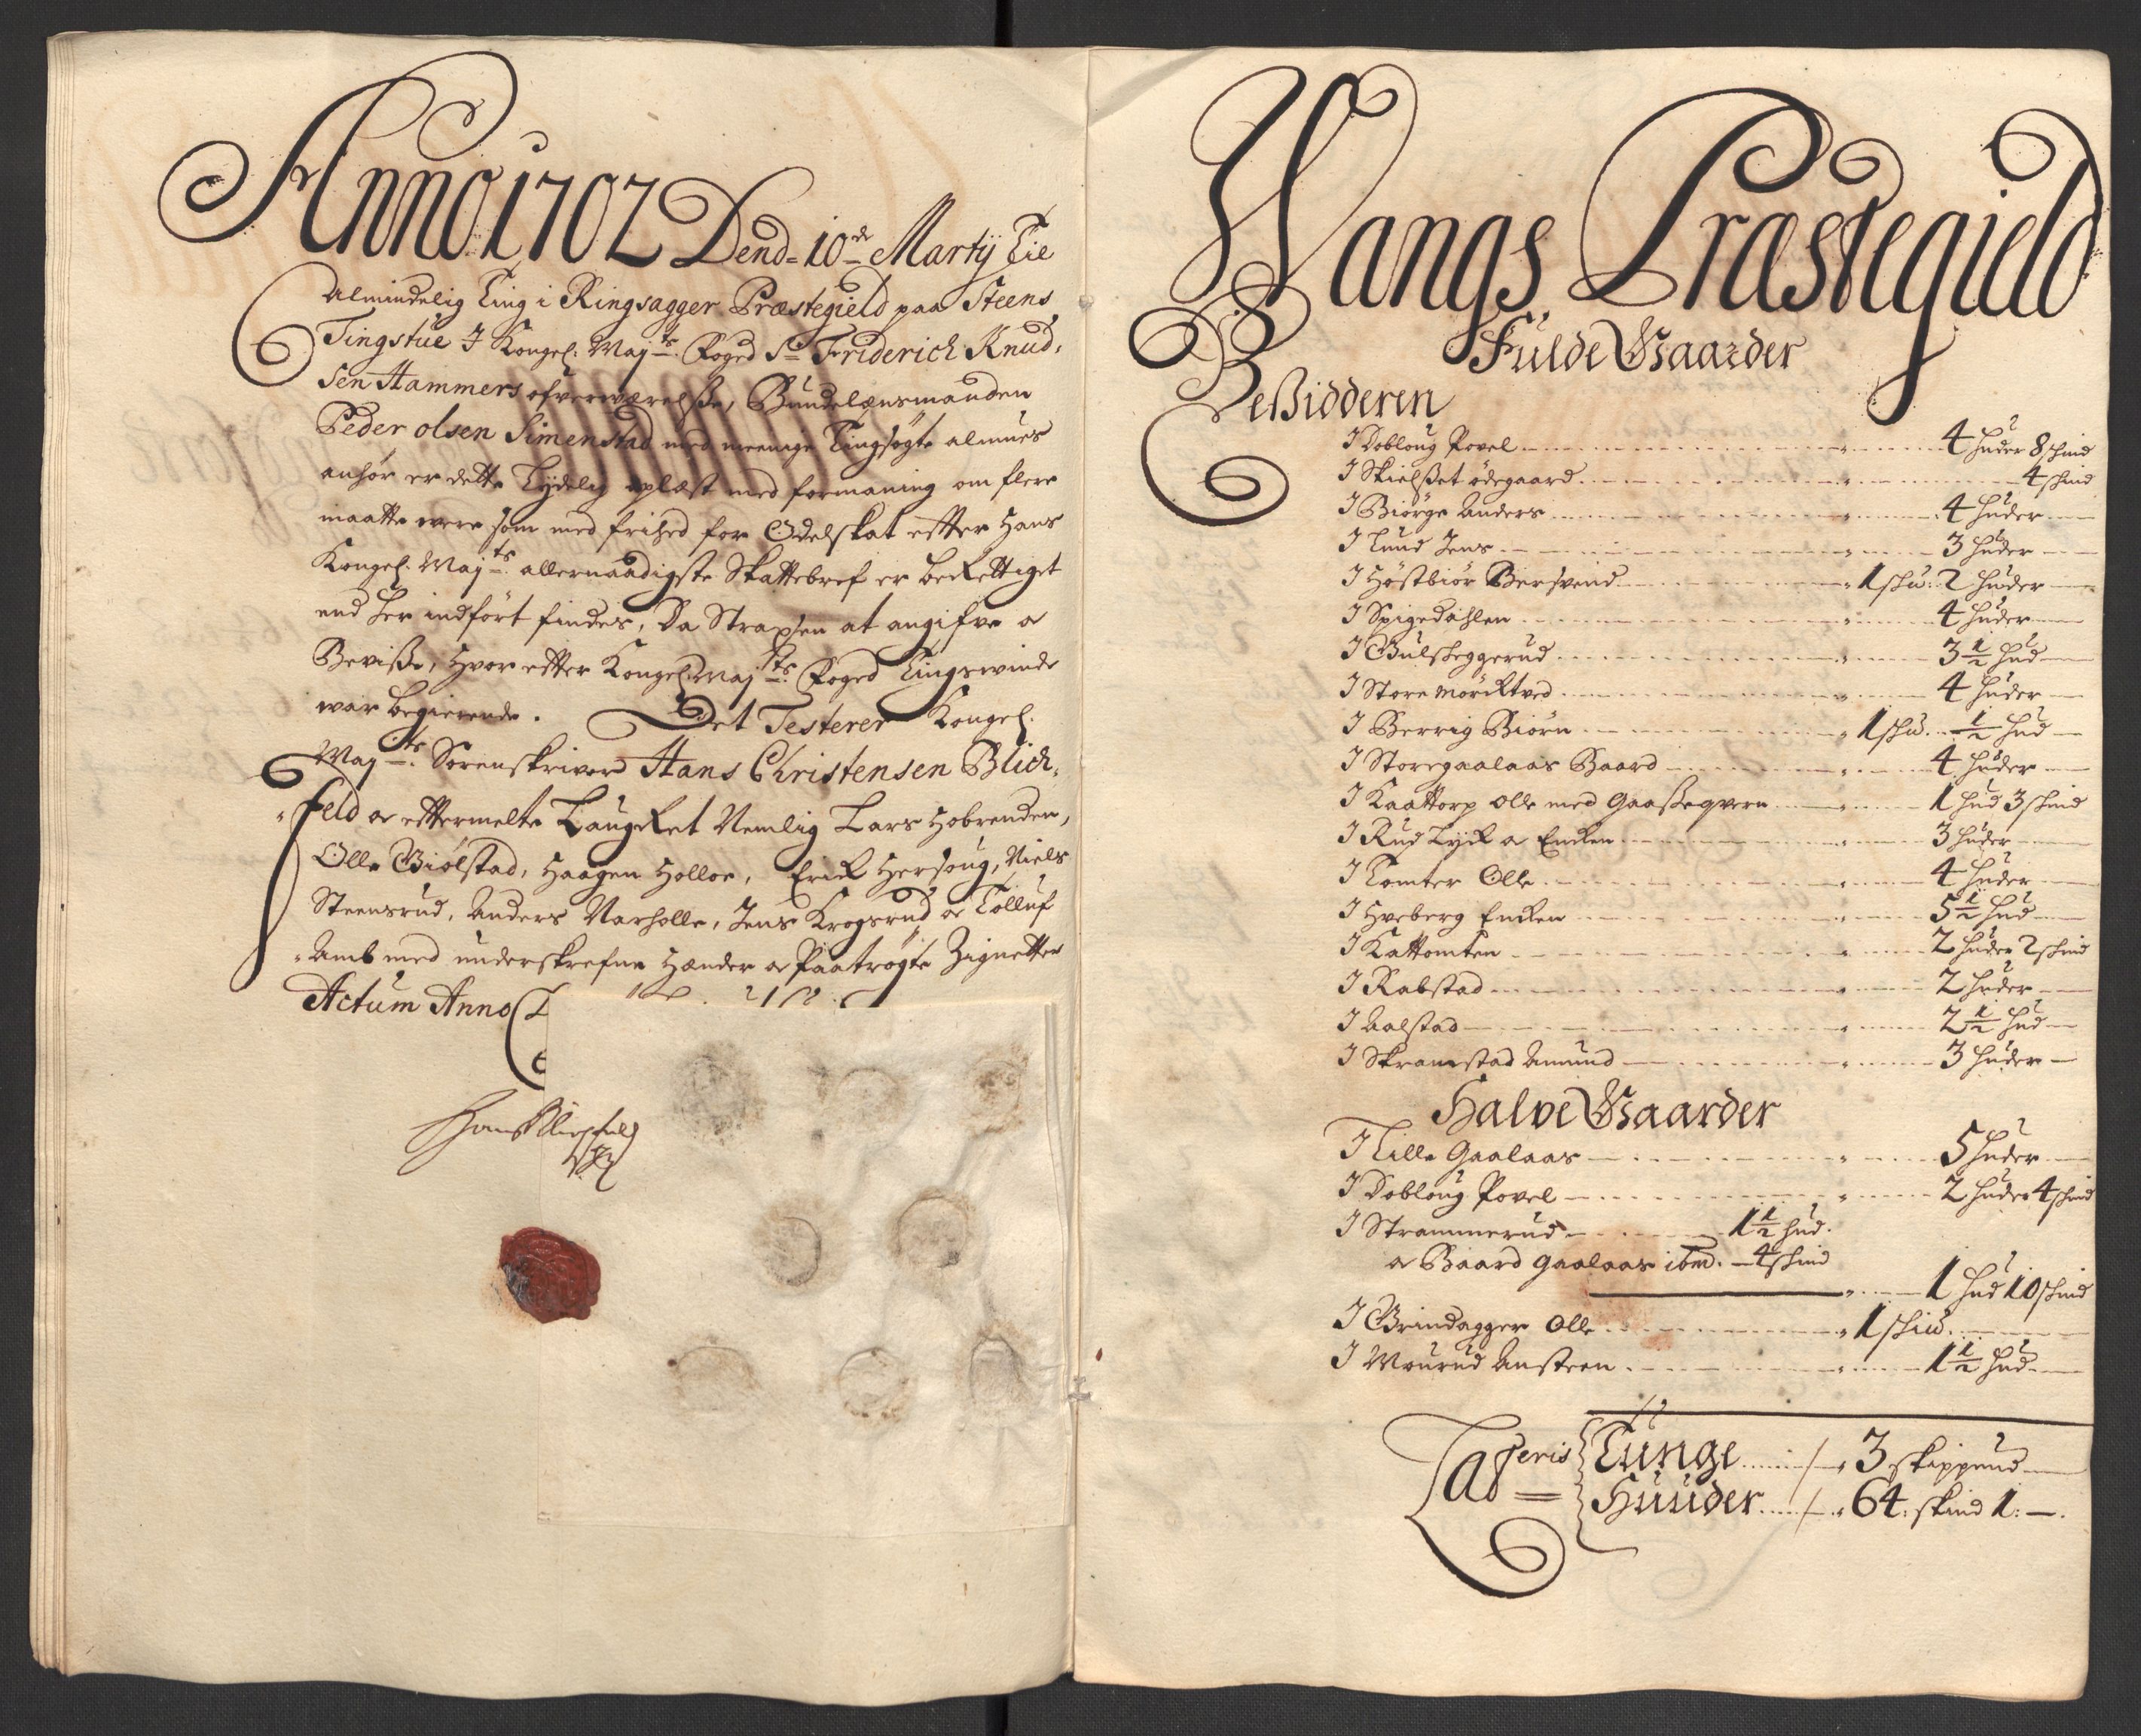 Anno 1702 Dend=10de Martij Tie
Almindelig Ting i Ringsagger Præstegield paa Steens
Tingstüe I Kongel: Majts. Foged Sr Friderich Knud,
sen Hammers ofverværelße, Bundelænsmanden
Peder olsen Simenstad med meenige Tingsøgte almues
anhør er dette Lydelig oplæst med formaning om flere
maatte were som med frihed for Odelskat effter Hans
Kongel. Majts. allernaadigste Skattebref er berettiget
end her indført findes, Da Strax sen at angifve oc
Beviße, Hvor effter Kongel Majts. Foged Tingswinde
war begierende. Det Testerer Kongel.
Majts. Sorenskriver Hans Christensen Blich,
feld oc efftermelte Laugret Nemlig Lars Hobrenden,
Olle Biølstad, Haagen Holloe, Erick Hersoug, Niels
Steensrud, Anders Narholle, Jens Krogsrud oc Tolluf
Amb med underskrefne Hænder oc Paatrøgte Zignetter
Actum Anno
Hans Blichfeld
Wangs Præstegield
Fulde Gaarder
Beßidderen
I Dobloug Povel 4 huder 8 skind
I Skielset ødegaard 4 skind
I Biørge Anders 4 huder
I Lund Jens 3 huder
I Høstbiør Bersvend 1 skw: 2 huder
I Spigedahlen 4 huder
I Gulskeggerud 3 1/2 hud
I Store Mørcktved 4 huder
I Berrig Biørn 1 skw. 1/2 hud
I Storegaalaas Baard 4 huder
I Kaattorp Olle med Gaaßeqvern 1 hud 3 skind
I Rud Lyck oc Encken 3 huder
I Tomter Olle 4 huder
I Hveberg Encken 5 1/2 hud
I Kattomten 2 huder 2 skind
I Rabstad 2 huder
I Aalstad 2 1/2 hud
I Skramstad Amund 3 huder
Halve Gaarder
I Lille Gaalaas 5 huder
I Dobloug Povel 2 huder 4 skind
I Strammerud 1 1/2 hud.
oc Baard Gaalaas ibm. 4 skind
1 hud 10 skind
I Grindagger Olle 1 skiw.
I Mourud Ansteen 1 1/2 hud
Lateris Tunge 3 skippund
Huuder 64: skind 1: